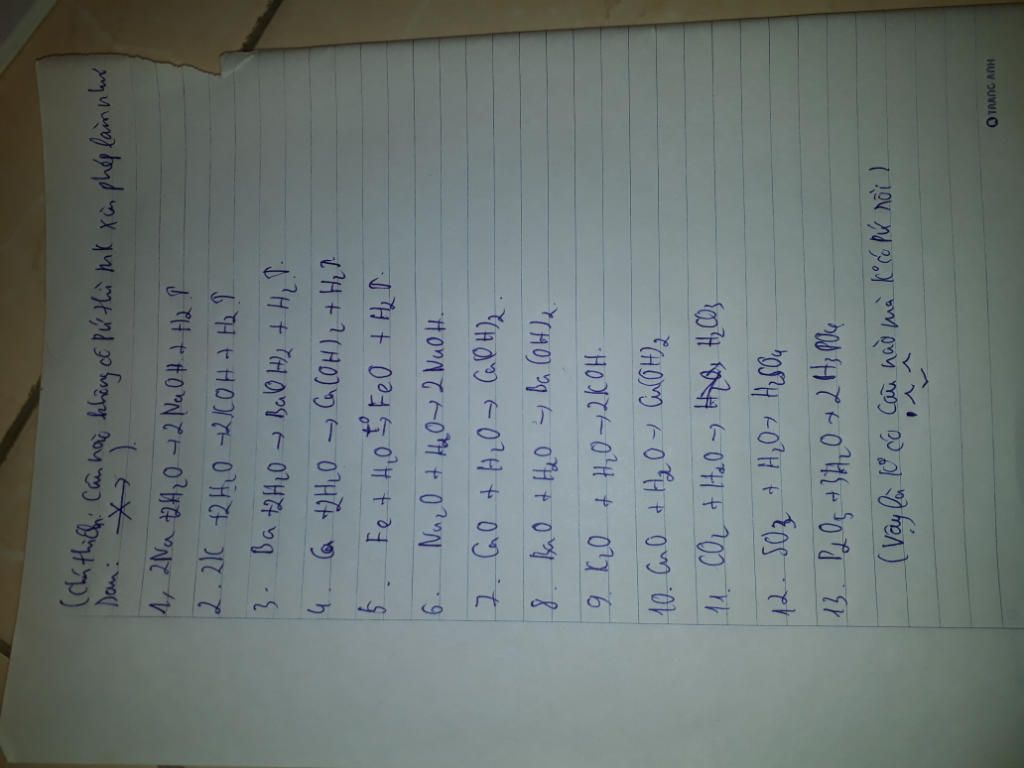 (Chú thích: Câu nào không có PỨ thì mk xin phép làm như
sau: —X→ ).
1, 2Na + 2H₂O → 2NaOH + H₂↑
2. 2K + 2H₂O → 2KOH + H₂↑
3. Ba + 2H₂O → Ba(OH)₂ + H₂↑.
4. Ca + 2H₂O → Ca(OH)₂ + H₂↑
5. Fe + H₂O –t°→ FeO + H₂↑.
6. Na₂O + H₂O → 2NaOH.
7. CaO + H₂O → Ca(OH)₂.
8. BaO + H₂O → Ba(OH)₂.
9. K₂O + H₂O → 2KOH.
10. CuO + H₂O → Cu(OH)₂
11. CO₂ + H₂O → H₂CO₃
12. SO₃ + H₂O → H₂SO₄
13. P₂O₅ + 3H₂O → 2H₃PO₄
(Vậy là k° có câu nào mà k° có PỨ rồi)
TRANG ANH